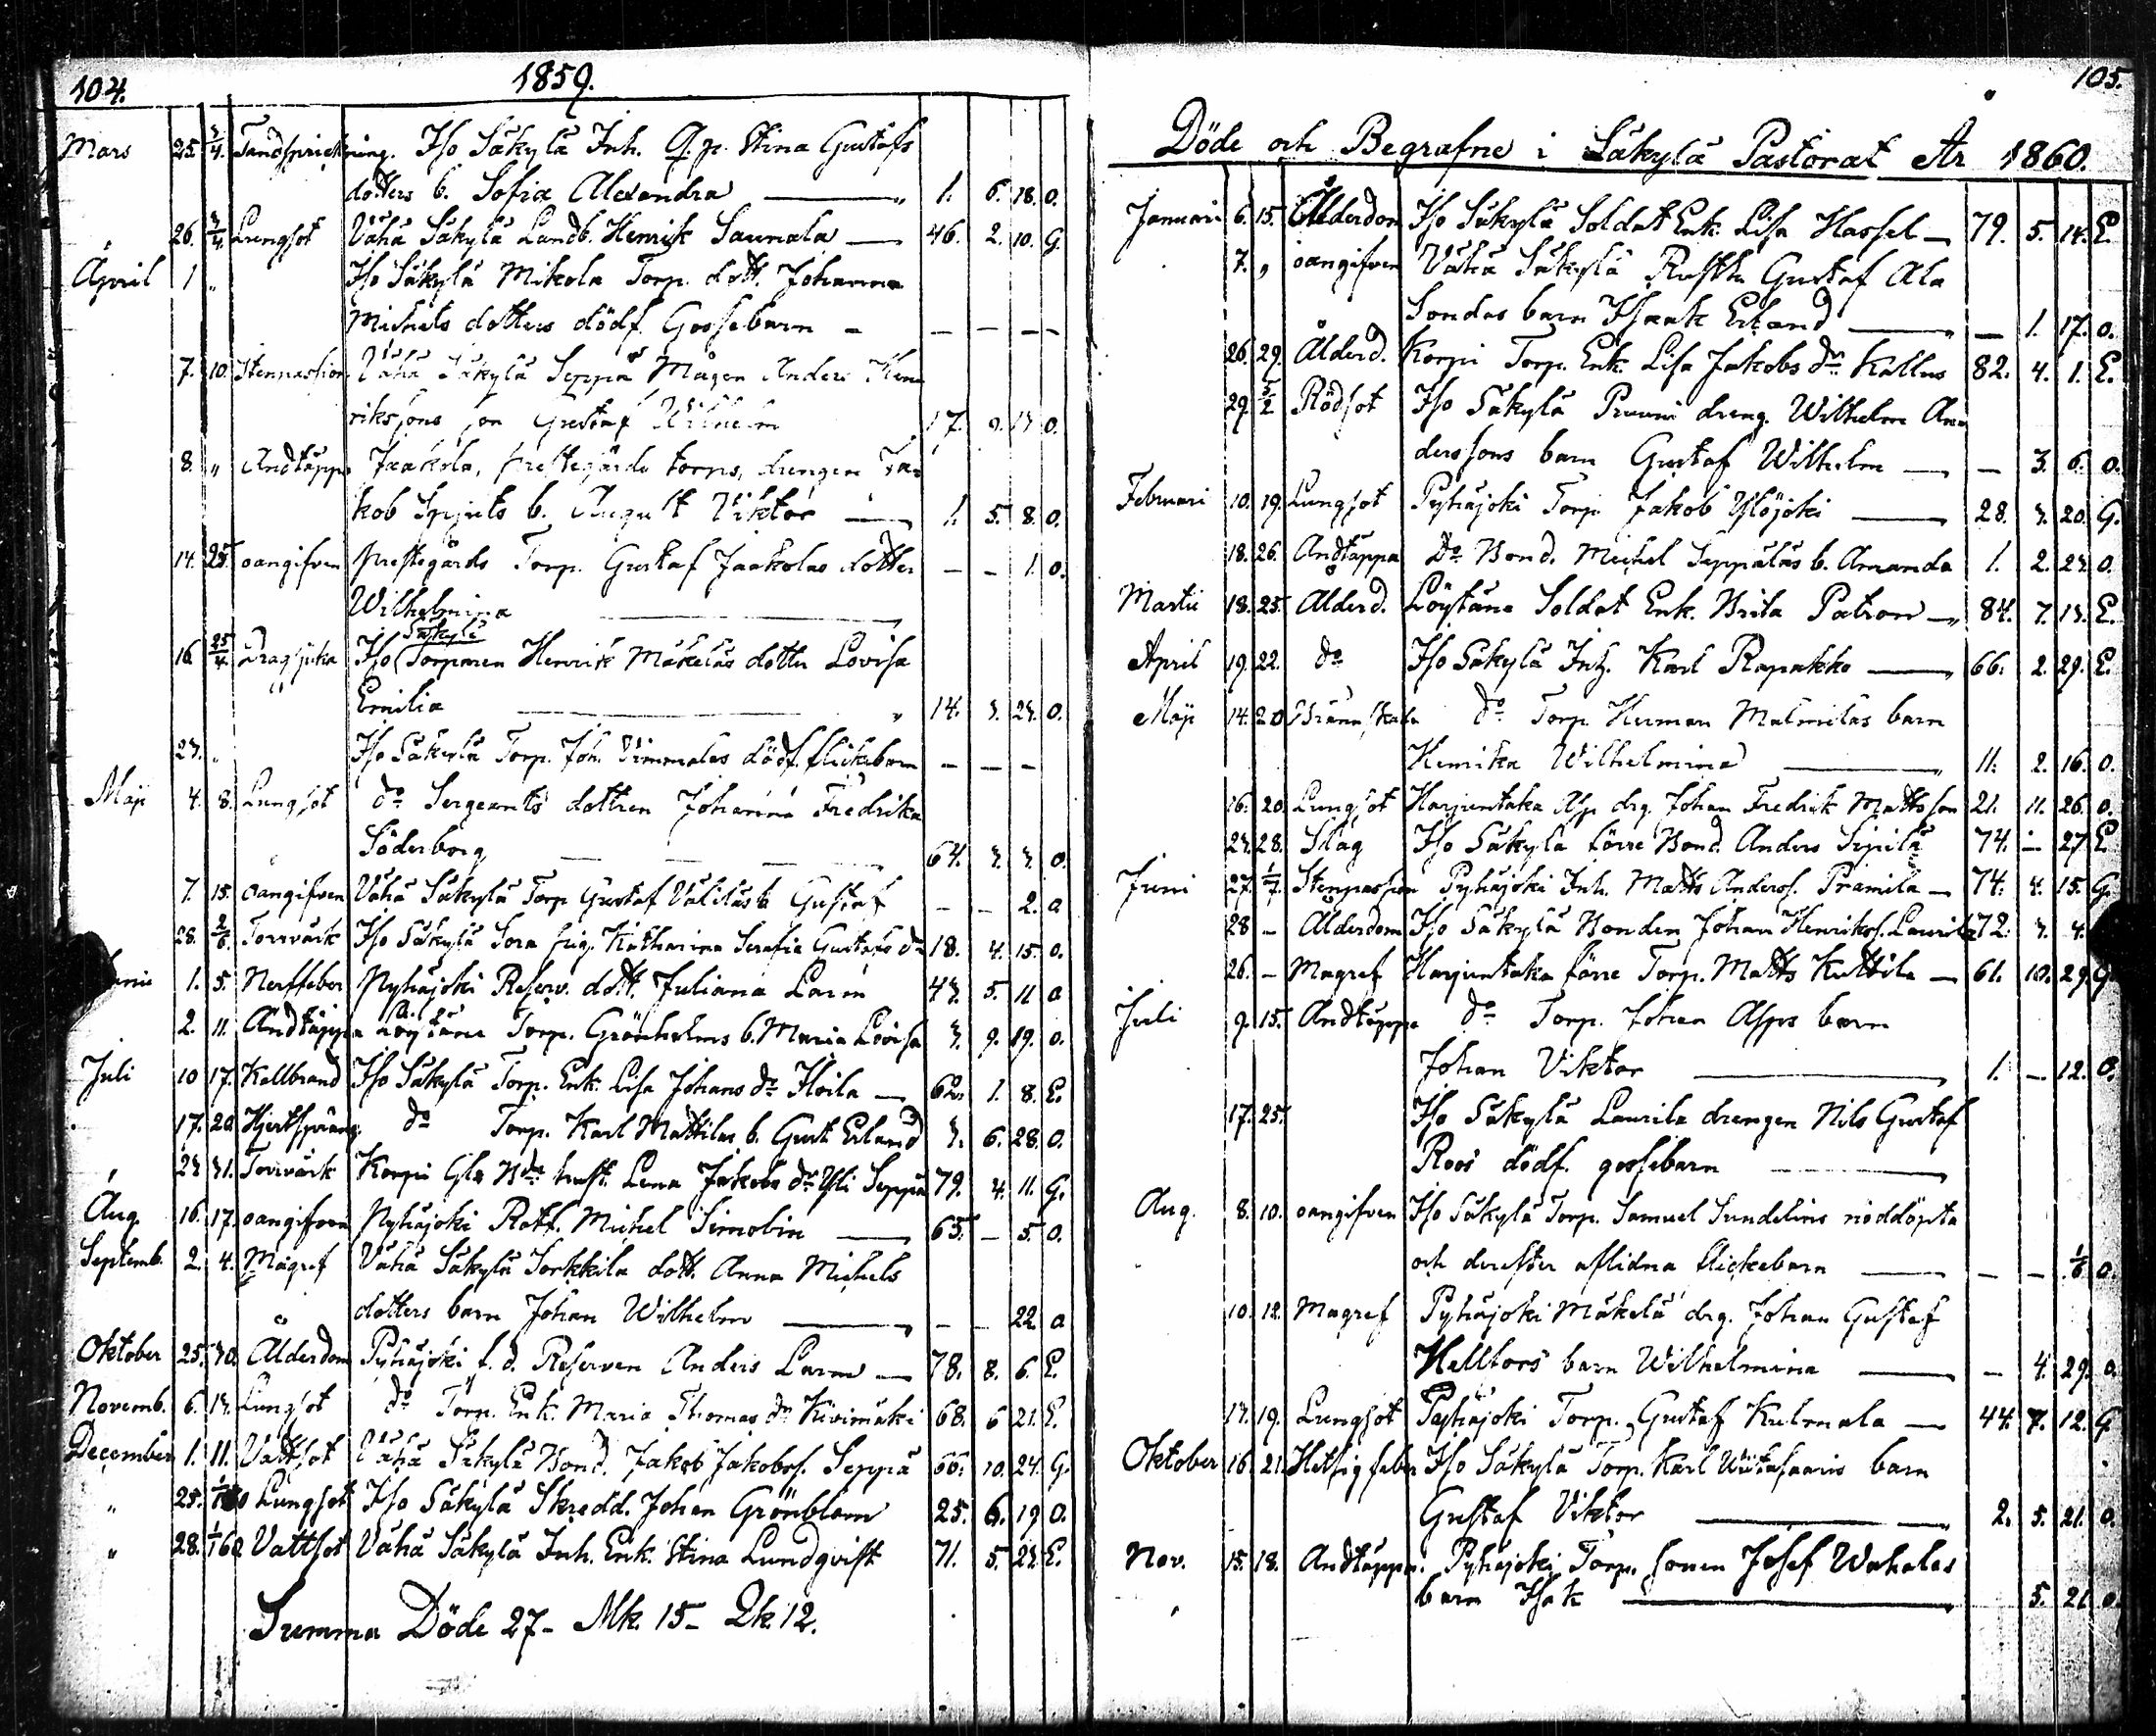 104. 1859.
Mars 25. 3/4. Tandsprickning. Iso Säkylä Inh. Q. p. Stina Gustafs
dotters b. Sofia Alexandra 1. 6. 18. O.
" 26. 3/4. Lungsot Vähä Säkylä Landb. Henrik Saunala 46. 2. 10. G.
April 1 " Iso Säkylä Mikola Torp. dott. Johanna
Michels dotters dödf. Gossebarn – – – –
7. 10. Stennassion Vähä Säkylä Seppä Mågen Anders Hen
rikssons son Gustaf Wilhelm 17. 9. 13 O.
8. " Andtäppa Jaakola, prestegårds torps, drengen Ja-
kob Spjuts b. August Viktor 1. 5. 8. O.
14. 25. oangifven prestegårds Torp. Gustaf Jaakolas dotter – – 1. O.
Wilhelmina
Säkylä
16. 25/4. Dragsjuka Iso Torparen Henrik Mäkeläs dotter Lovisa
Emilia 14. 3. 23. O.
23. " Iso Säkylä Torp. Joh. Vimmalas dödf. flickebarn – – –
Maji 4. 8. Lungsot do Sergeants dottren Johanna Fredrika
Söderborg 64. 3. 3. O.
7. 15. oangifven Vähä Säkylä Torp Gustaf Väliläs b. Gustaf – – 2. O
28. 2/6. Torrvärk Iso Säkylä Sora pig. Katharina Serafia Gustafs dr 18. 4. 15. O.
1. 5. Nerffeber Pyhäjoki Reserv. dott. Juliana Larm 43. 5. 11 O
2. 11. Andtäppa Löytäne Torp. Grönholms b. Maria Lovisa 3. 9. 19. O.
Juli 10 17. Kallbrand Iso Säkylä Torp. Enk. Lisa Johans dr Hoila 62. 1. 8. E.
17. 20. Hjertspräng. do Torp. Karl Mattilas b. Gust. Erland 3. 6. 28. O.
23 31. Torrvärk Korpi Gla Bdes hust. Lena Jakobs dr Yli Seppä 79. 4. 11. G.
Aug. 16. 17. oangifven Pyhäjoki Ratt. Michel Simolin 65. – 5. O.
Septemb. 2. 4. Mågref Vähä Säkylä Torkkila dott. Anna Michels
dotters barn Johan Wilhelm – – 22. O
Oktober 25. 30. Ålderdom Pyhäjoki f. d. Reserven Anders Larm 78. 8. 6. E.
Novemb. 6. 13. Lungsot do Torp. Enk. Maria Thomas dr Kivimäki 68. 6 21. E.
December 1. 11. Vattsot Vähä Säkylä Bond. Jakob Jakobss. Seppä 66. 10. 24. G.
" 25. Lungsot Iso Säkylä Skredd. Johan Grönblom 25. 6. 19 O.
" 28. 1/1 60. Vattsot Vähä Säkylä Inh. Enk. Stina Lundqvist 71. 5. 23. E.
Summa Döde 27 – Mk. 15 – Qk. 12.
105.
Döde och Begrafne i Säkylä Pastorat År 1860.
Januari 6. 15. Ålderdom Iso Säkylä Soldat Enk. Lisa Hassel 79. 5. 14. E.
7. " oangifven Vähä Säkylä Rusth. Gustaf Ala
Sondas barn Isaak Erland – 1. 17. O.
26. 29. Ålderd. Korpi Torp. Enk. Lisa Jakobs dr Kallus 82. 4. 1. E.
29. 5/2 Rödsot Iso Säkylä Pruuni dreng. Wilhelm An-
derssons barn Gustaf Wilhelm – 3. 6. O.
Februari 10. 19. Lungsot Pyhäjoki Torp. Jakob Ylöjoki 28. 3. 20. G.
18. 26. Andtäppa do Bond. Michel Seppäläs b. Amanda 1. 2. 23. O.
Martii 18. 25. Ålderd. Löytäne Soldat Enk. Brita Patron 84. 7. 13. E.
April 19. 22. do Iso Säkylä Inh. Karl Rapakko 66. 2. 29. E.
Maji 14. 20. Brännskada do Torp Herman Malmilas barn
Henrika Wilhelmina 11. 2. 16. O.
16. 20. Lungsot Harjuntaka Asp drg. Johan Fredrik Mattsson 21. 11. 26. O.
23. 28. Slag Iso Säkylä förre Bond. Anders Sipilä 74. – 27. E
Juni 27. 1/7. Stenpassion Pyhäjoki Inh. Matts Anderss. Prämila 74. 4. 15. G.
28 – Ålderdom Iso Säkylä Bonden Johan Henrikss. Laurila 72. 3. 4.
26. – Magref Harjuntaka förre Torp. Matts Kuttila 61. 10. 29. G
Juli 9. 15. Andtäppa do Torp. Johan Asps barn
Johan Viktor 1. – 12. O.
17. 25. Iso Säkylä Laurila drengen Nils Gustaf
Roos dödf. gossebarn
Aug. 8. 10. oangifven Iso Säkylä Torp. Samuel Sundelins nöddöpta
och derefter aflidna flickebarn – – 1/6 O.
10. 12. Magref Pyhäjoki Mäkelä drg. Johan Gustaf
Hellfors barn Wilhelmina – 4. 29. O.
13. 19. Lungsot Pyhäjoki Torp. Gustaf Kulmala 44. 7. 12. G
Oktober 16. 21. Hetsig feber Iso Säkylä Torp. Karl Wiitasaaris barn
Gustaf Viktor 2. 5. 21. O.
Nov. 15. 18. Andtäppa. Pyhäjoki Torp. sonen Josef Wahalas
barn Isak 5. 21. O.